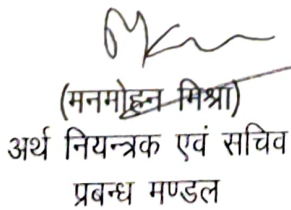 (मनमोहन मिश्रा)
अर्थ नियन्त्रक एवं सचिव
प्रबन्ध मण्डल